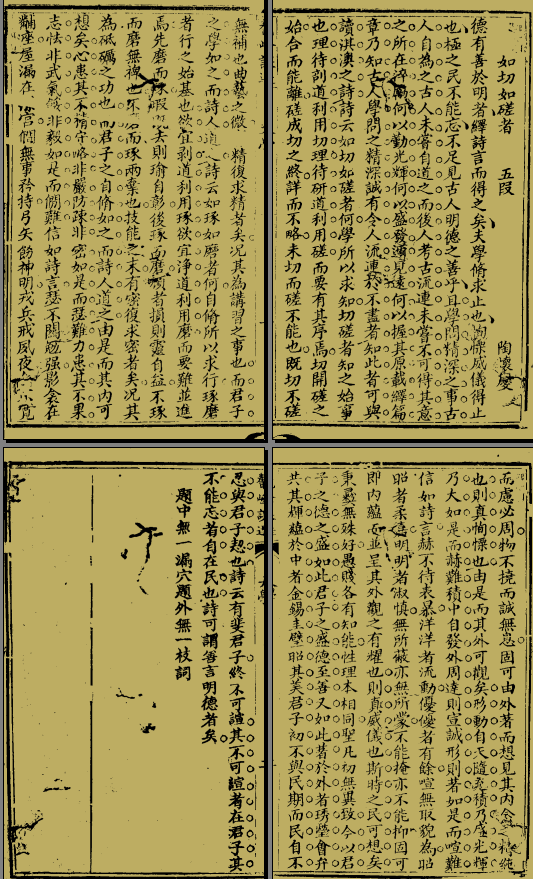 如切如磋者 五段 陶懷
德有善於明者繹詩言而得之矣夫學脩求止也恂慄威儀得止
也極之民不能忘不足見古人明德之善乎且學問精深之事古
人自為之古人未嘗自道之而後人考古流連未嘗不可得其意
之所在何以勤光輝何以盛發見遠何以握其原載繹篇
章乃知古人學問之精深誠有令人流連於不盡者知此者可與
讀淇澳之詩詩云如切如磋者何學所以求知切磋者知之始事
也理待剖道利用切理待研道利用磋而要有其序焉切開磋之
始合而能離磋成切之終詳而不略未切而磋不能也既切不磋
無補也曲藝之微 精復求精者矣况其為講習之事也而君子
之學如之而詩人道之詩云如琢如磨者何自脩所以求行琢磨
者行之始基也欲宜剥道利用琢欲宜淨道利用磨而要難並進
馬先磨而瑕去則瑜自彰後琢而磨者損則靈自益不琢
而磨無裨也不而琢兩棄也技能之末有密復求密者矣况其
為砥礪之功也而君子之自脩如之而詩人道之由是而其内可
想矣心患其不精守略非嚴防疎非密如是而瑟難力患其不果
志怯非武氣餒非毅如是而僩難信如詩言瑟不間勉强影衾在
屋漏在僩無事矜持弓矢飭神明戎兵戒夙夜
而慮必周物不撓而誠無息固可由外著而想見其内含之精純
也則真恂慄也由是而其外可觀矣形動自天隨充積乃盛光輝
乃大如是而赫難積中自發外周達則宣誠形則著如是而喧難
信如詩言赫不待表暴洋洋者流動優優者有餘喧無取貌為昭
昭者柔嘉明明者淑慎無所蔽亦無所蒙不能掩亦不能抑固可
即内藴而並呈其外觀之有耀也則真威儀也斯時之民可想矣
秉彝無殊好愚賤各有知能性理本相同聖凡初無異致今以君
子之德之盛如此君子之盛德至善又如此著於外者琇瑩會弁
共其輝藴於中者金錫圭璧昭其美君子初不與民期而民自不
忍與君子恝也詩云有斐君子終不可諠其不可諠者在君子其
不能忘者自在民也詩可謂善言明德者矣
題中無一漏穴題外無一枝詞